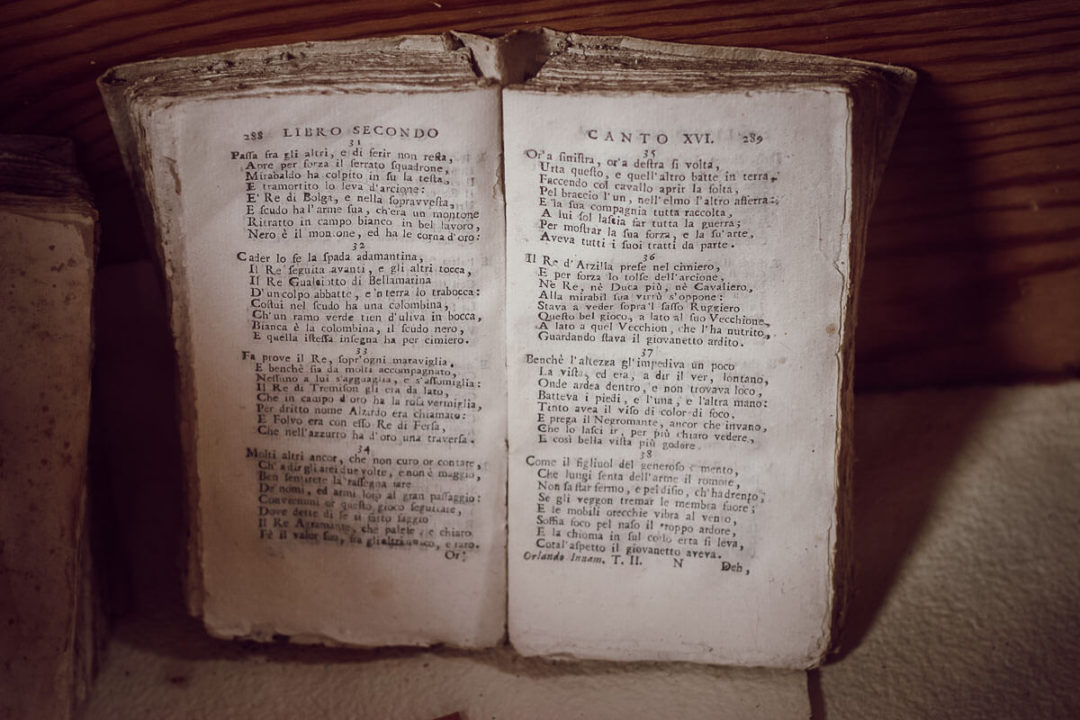 288 LIBRO SECONDO
31
Passa fra gli altri, e di ferir non resta,
Apre per forza il serrato squadrone,
Mirabaldo ha colpito in su la testa,
E tramortito lo leva d'arcione:
E' Re di Bolga, e nella sopravvesta,
E scudo ha l'arme sua, ch'era un montone
Ritratto in campo bianco in bel lavoro,
Nero è il montone, ed ha le corna d'oro:
32
Cader lo fe la spada adamantina,
Il Re seguita avanti, e gli altri tocca,
Il Re Gualciotto di Bellamarina
D'un colpo abbatte, e'n terra lo trabocca:
Costui nel scudo ha una colombina,
Ch'un ramo verde tien d'uliva in bocca,
Bianca è la colombina, il scudo nero,
E quella istessa insegna ha per cimiero.
33
Fa prove il Re, sopr'ogni maraviglia,
E benchè sia da molti accompagnato,
Nessuno a lui s'agguaglia, e s'assomiglia:
Il Re di Tremison gli era da lato,
Che in campo d'oro ha la rosa vermiglia,
Per dritto nome Alzardo era chiamato:
E Folvo era con esso Re di Fersa,
Che nell'azzurro ha d'oro una traversa.
34
Molti altri ancor, che non curo or contare,
Ch'a dir gli arei due volte, e non è maggio,
Ben sentirete la rassegna fare
De' nomi, ed armi loro al gran passaggio:
Convienmi or questo gioco seguitare,
Dove dette di se sì fatto saggio
Il Re Agramante, che palese, e chiaro
Fè il valor suo, fra gli altri unico, e raro.
Or'
CANTO XVI. 289
35
Or'a sinistra, or'a destra si volta,
Urta questo, e quell'altro batte in terra,
Faccendo col cavallo aprir la folta,
Pel braccio l'un, nell'elmo l'altro afferra:
E la sua compagnia tutta raccolta,
A lui sol lascia far tutta la guerra;
Per mostrar la sua forza, e la su'arte,
Aveva tutti i suoi tratti da parte.
36
Il Re d'Arzilla prese nel cimiero,
E per forza lo tolse dell'arcione,
Nè Re, nè Duca più, nè Cavaliero,
Alla mirabil sua virtù s'oppone:
Stava a veder sopra'l sasso Ruggiero
Questo bel gioco, a lato al suo Vecchione,
A lato a quel Vecchion, che l'ha nutrito,
Guardando stava il giovanetto ardito.
37
Benchè l'altezza gl'impediva un poco
La vista, ed era, a dir il ver, lontano,
Onde ardea dentro, e non trovava loco,
Batteva i piedi, e l'una, e l'altra mano:
Tinto avea il viso di color di foco,
E prega il Negromante, ancor che invano,
Che lo lasci ir, per più chiaro vedere,
E così bella vista più godere.
38
Come il figliuol del generoso mento,
Che lungi senta dell'arme il romore,
Non sa star fermo, e pel disio, ch'ha drento,
Se gli veggon tremar le membra fuore;
E le mobili orecchie vibra al vento,
Soffia foco pel naso il troppo ardore,
E la chioma in sul collo erta si leva,
Cotal'aspetto il giovanetto aveva.
Orlando Innam. T. II. N Deh,